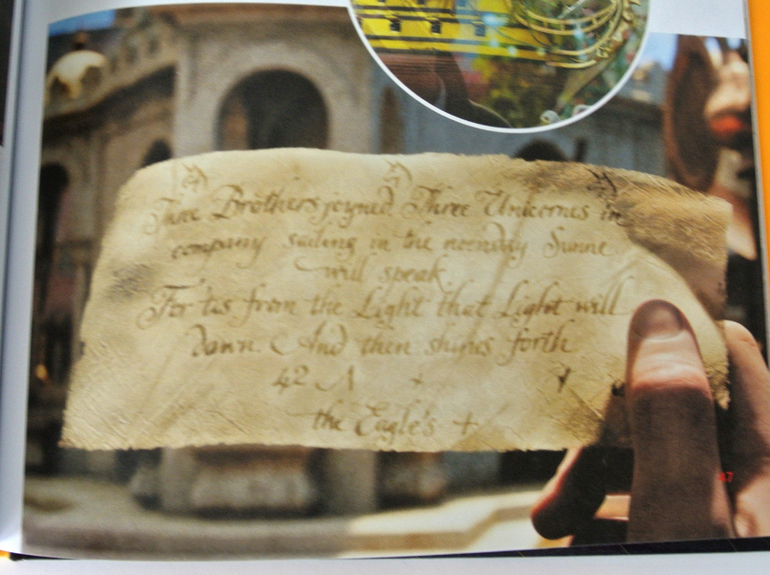 Three Brothers joyned. Three Unicornes in
company sailing in the noonday Sunne
will speak.
For 'tis from the Light that Light will
dawn. And then shines forth
42
the Eagle's +
47